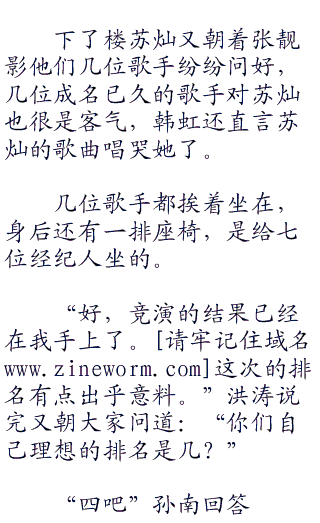 下了楼苏灿又朝着张靓
影他们几位歌手纷纷问好，
几位成名已久的歌手对苏灿
也很是客气，韩虹还直言苏
灿的歌曲唱哭她了。
几位歌手都挨着坐在，
身后还有一排座椅，是给七
位经纪人坐的。
“好，竞演的结果已经
在我手上了。[请牢记住域名
www.zineworm.com]这次的排
名有点出乎意料。”洪涛说
完又朝大家问道：“你们自
己理想的排名是几？”
“四吧”孙南回答